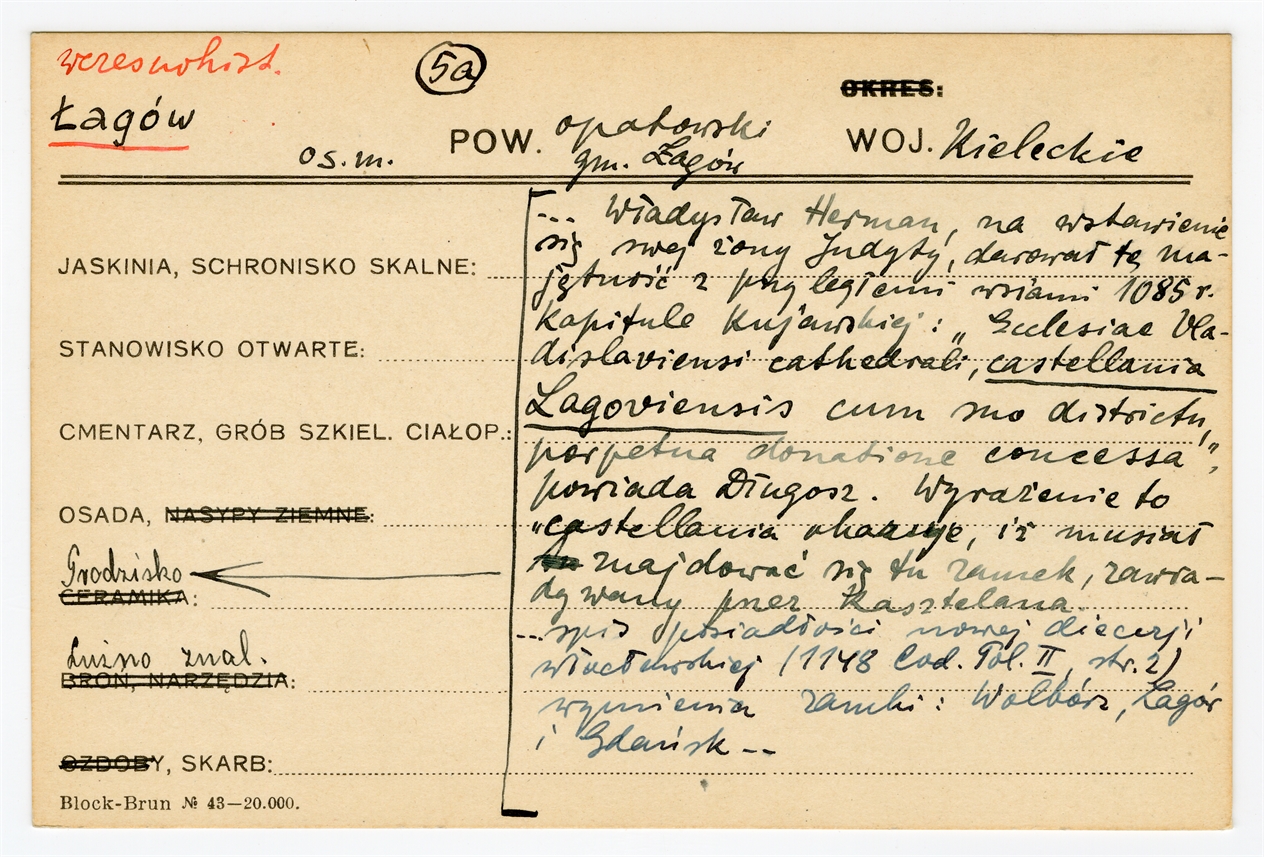 wczesnohist.
5a
OKRES:
Łagów
os.m.
POW. opatowski
gm. Łagów
WOJ. Kieleckie
JASKINIA, SCHRONISKO SKALNE:
STANOWISKO OTWARTE:
CMENTARZ, GRÓB SZKIEL. CIAŁOP.:
OSADA, NASYPY ZIEMNE:
Grodzisko
CERAMIKA:
Luźno znal.
BROŃ, NARZĘDZIA:
OZDOBY, SKARB:
Block-Brun № 43—20.000.
... Władysław Herman, na wstawienie
się swej żony Judyty, darował tę ma-
jętność z przyległemi wsiami 1085 r.
Kapitule Kujawskiej: „Ecclesiae Vla-
dislaviensi cathedrali, castellania
Lagoviensis cum suo districtu,
perpetua donatione concessa",
powiada Długosz. Wyrażenie to
"castellania okazuje, iż musiał
znajdować się tu zamek, zawia-
dywany przez Kasztelana.
...spis posiadłości nowej diecezji
włocławskiej (1148 Cod. Pol. II, str. 2)
wymienia zamki: Wolbórz, Łagów
i Gdańsk --